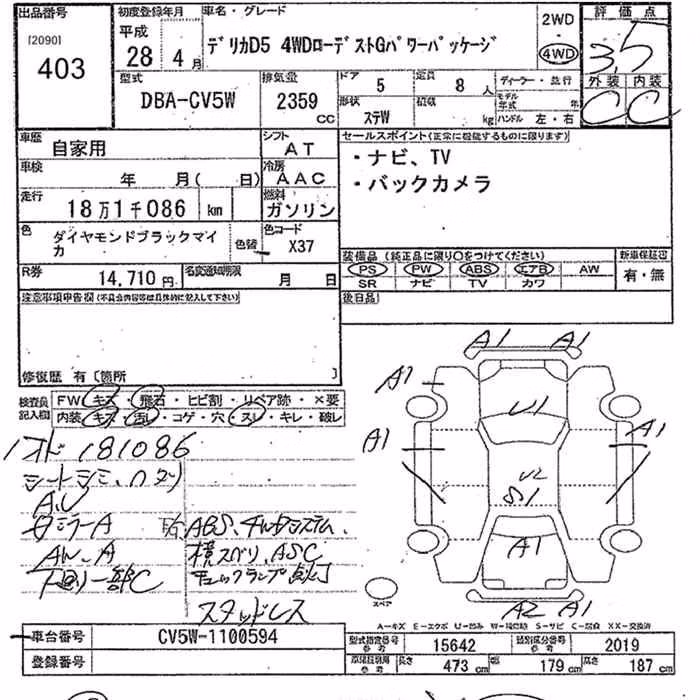 出品番号
[2090]
403
初度登録年月
平成
28年 4月
車名・グレード
デリカD5 4WDローデストGパワーパッケージ
2WD
・
4WD
評価点
3.5
外装 内装
C C
型式
DBA-CV5W
排気量
2359 cc
ドア 5
定員 8人
形状 ステW
積載 kg
ディーラー・並行
モデル年式 年
ハンドル 左・右
車歴 自家用
シフト AT
車検 年 月( 日)
冷房 AAC
走行 18万1千086 km
燃料 ガソリン
色 ダイヤモンドブラックマイカ
色替
色コード X37
R券 14,710円
名変通知期限 月 日
セールスポイント(正常に機能するものに限ります)
・ナビ、TV
・バックカメラ
装備品(純正品に限り○をつけてください)
PS PW ABS エアB AW
SR ナビ TV カワ
新車保証書
有・無
後日品
注意事項申告欄(不具合内容等は具体的に記入して下さい)
修復歴 有〔箇所 〕
検査員記入欄
FW キズ・飛石・ヒビ割・リペア跡・×要
内装 キズ・汚レ・コゲ・穴・スレ・キレ・破レ
181086
A.U
ミラーA
ABS、
AW、A
横スベリ、ASC
下回り一部C
チェックランプ点灯
スタッドレス
A1 A1
A1
U1
A1 A1
U2
S1
A1
A2 A1
スペア
A-キズ E-エクボ U-凹み W-補修跡 S-サビ C-腐食 XX-交換済
車台番号 CV5W-1100594
登録番号
型式指定番号 参考 15642
類別区分番号 参考 2019
車庫証明用 参考
長さ 473cm 幅 179cm 高さ 187cm